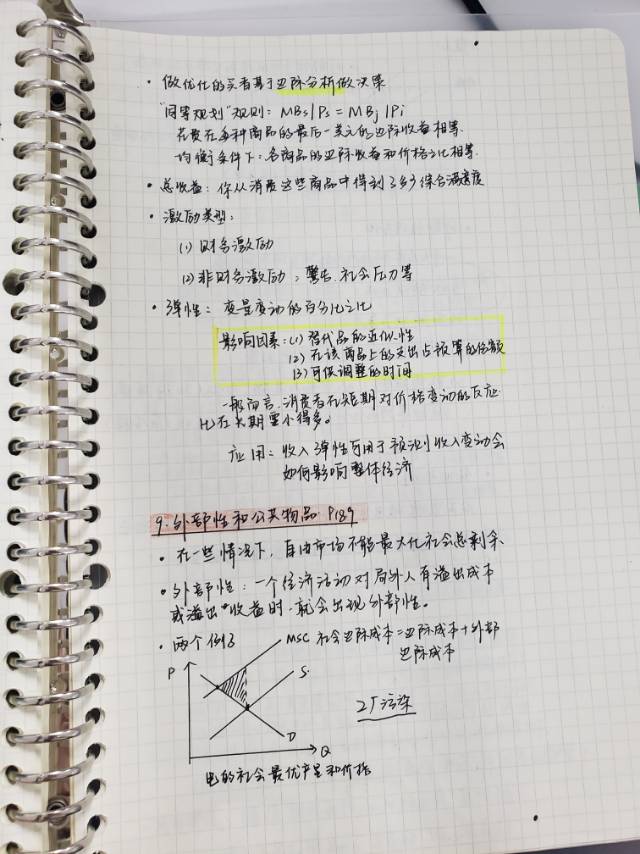 · 做优化的买者基于边际分析做决策
"同等规划"规则: MBs/Ps = MBj/Pi
花费在每种商品的最后一美元的边际收益相等.
均衡条件下:各商品的边际收益和价格之比相等.
· 总收益:你从消费这些商品中得到了多少综合满意度
· 激励类型:
(1) 财务激励
(2) 非财务激励:警告.社会压力等
· 弹性: 变量变动的百分比之比
影响因素:(1) 替代品的近似性
(2) 在该商品上的支出占预算的份额
(3) 可供调整的时间
一般而言.消费者在短期对价格变动的反应
比在长期要小得多。
应用:收入弹性可用于预测收入变动会
如何影响整体经济
9.外部性和公共物品 P189
· 在一些情况下,自由市场不能最大化社会总剩余.
· 外部性:一个经济活动对局外人有溢出成本
或溢出收益时.就会出现外部性。
· 两个例子
MSC 社会边际成本=边际成本+外部
边际成本
P
S
工厂污染
D
Q
电的社会最优产量和价格